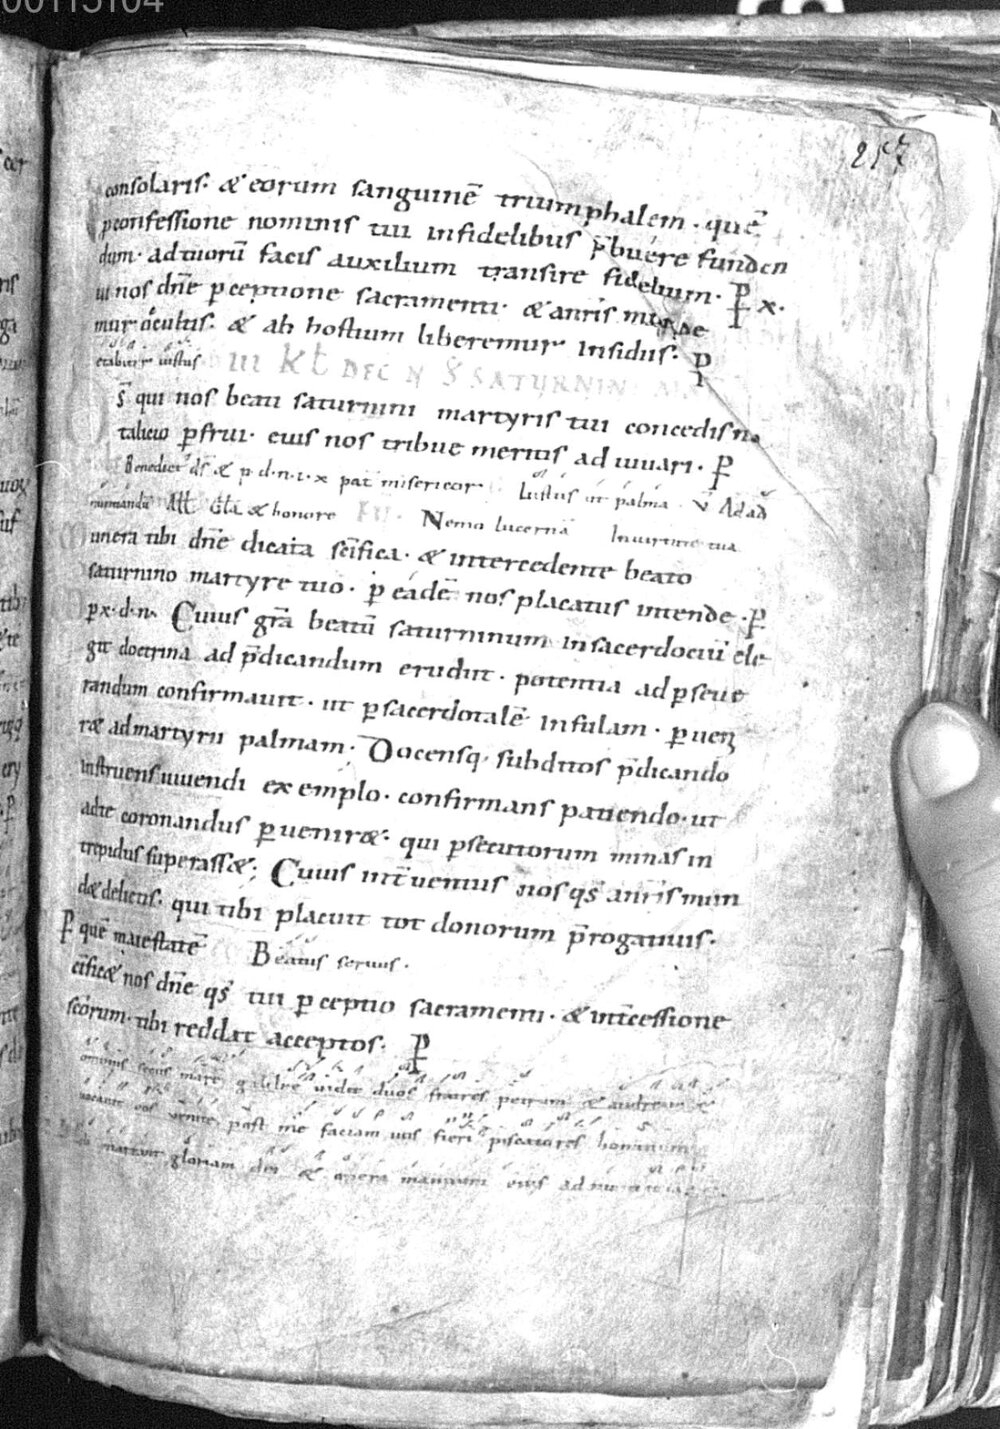 00115104
257
consolaris· & eorum sanguinē triumphalem· quē
pconfessione nominis tui infidelibus p̄buére funden
dum· ad tuorū facis auxilium transire fidelium· P x·
ui nos dn̄e pceptione sacramenti· & anris munde
mur ocultis· & ab hostium liberemur insidiis· P
etabitur iustus III KL DEC N S SATURNINI
s̄ qui nos beati saturnini martyris tui concedis na
talicio pfrui· eius nos tribue meritis ad iuuari· P
Benedict d̄s & p·d·n·i·x pat misericor Iustus ut palma v̄ Ad ad
nuntiandū All Gła & honore Nemo lucernā In uirtute tua
unera tibi dn̄e dicata sc̄ifica· & intercedente beato
saturnino martyre tuo· p eadē nos placatus intende· P
px·d·n· Cuius gr̄a beatū saturninum insacerdociū ele
git doctrina ad p̄dicandum erudiit· potentia ad pseue
randum confirmauit· ut psacerdotalē infulam· pueni
ræ admartyrii palmam· Docensq· subditos p̄dicando
instruens uiuendi exemplo· confirmans patiendo· ut
adte coronandus puenir&· qui psecutorum minas in
trepidus superass&; Cuius int̄uentus nos qs̄ anris mun
d& delictis· qui tibi placuit tot donorum p̄rogatiuis·
P quē maiestatē Beatus seruus·
cific& nos dn̄e qs̄ tui pceptio sacramenti· & int̄cessione
sc̄orum· tibi reddat acceptos· P
ominus secus mare galilee uidit duos fratres petrum & andream &
uocauit eos uenite post me faciam uos fieri piscatores hominum
narrant gloriam dei & opera manuum eius ad nuntiat